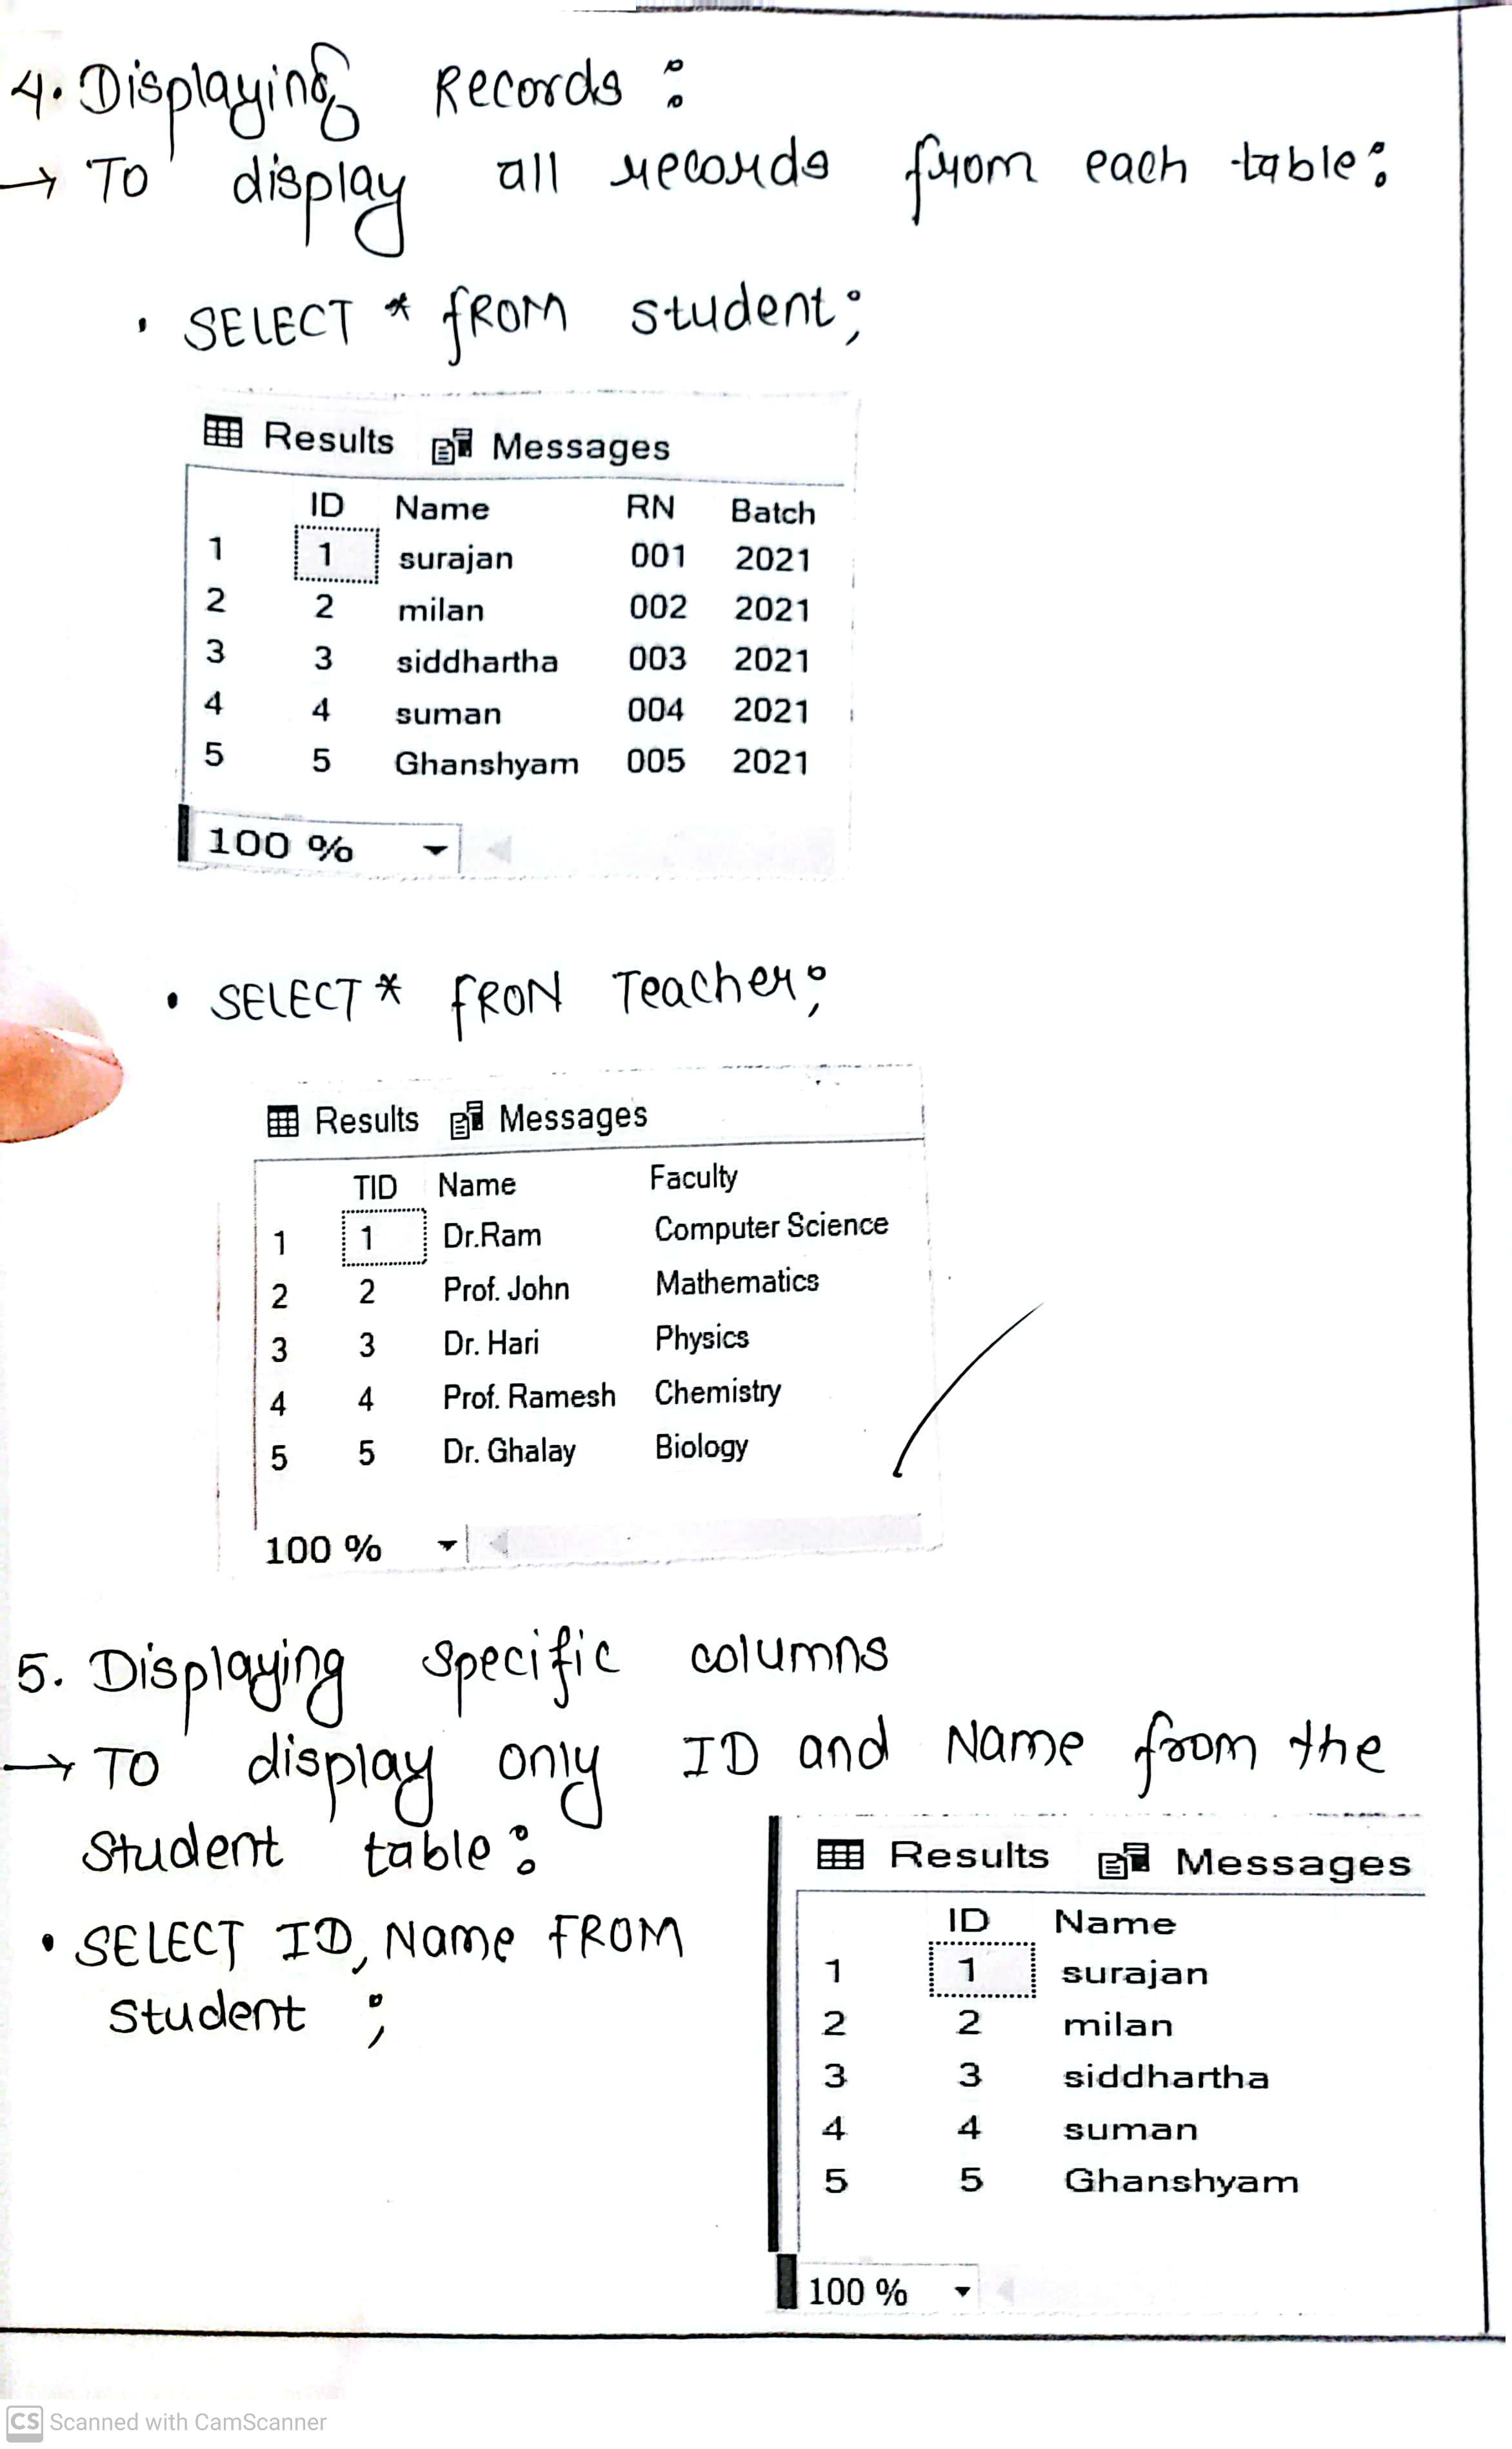 4. Displaying Records :
→ To display all records from each table :
• SELECT * fROM student ;
Results Messages
ID Name RN Batch
1 1 surajan 001 2021
2 2 milan 002 2021
3 3 siddhartha 003 2021
4 4 suman 004 2021
5 5 Ghanshyam 005 2021
100 %
• SELECT * fRON Teacher ;
Results Messages
TID Name Faculty
1 1 Dr.Ram Computer Science
2 2 Prof. John Mathematics
3 3 Dr. Hari Physics
4 4 Prof. Ramesh Chemistry
5 5 Dr. Ghalay Biology
100 %
5. Displaying specific columns
→ To display only ID and Name from the
Student table :
• SELECT ID, Name FROM
Student ;
Results Messages
ID Name
1 1 surajan
2 2 milan
3 3 siddhartha
4 4 suman
5 5 Ghanshyam
100 %
CS Scanned with CamScanner